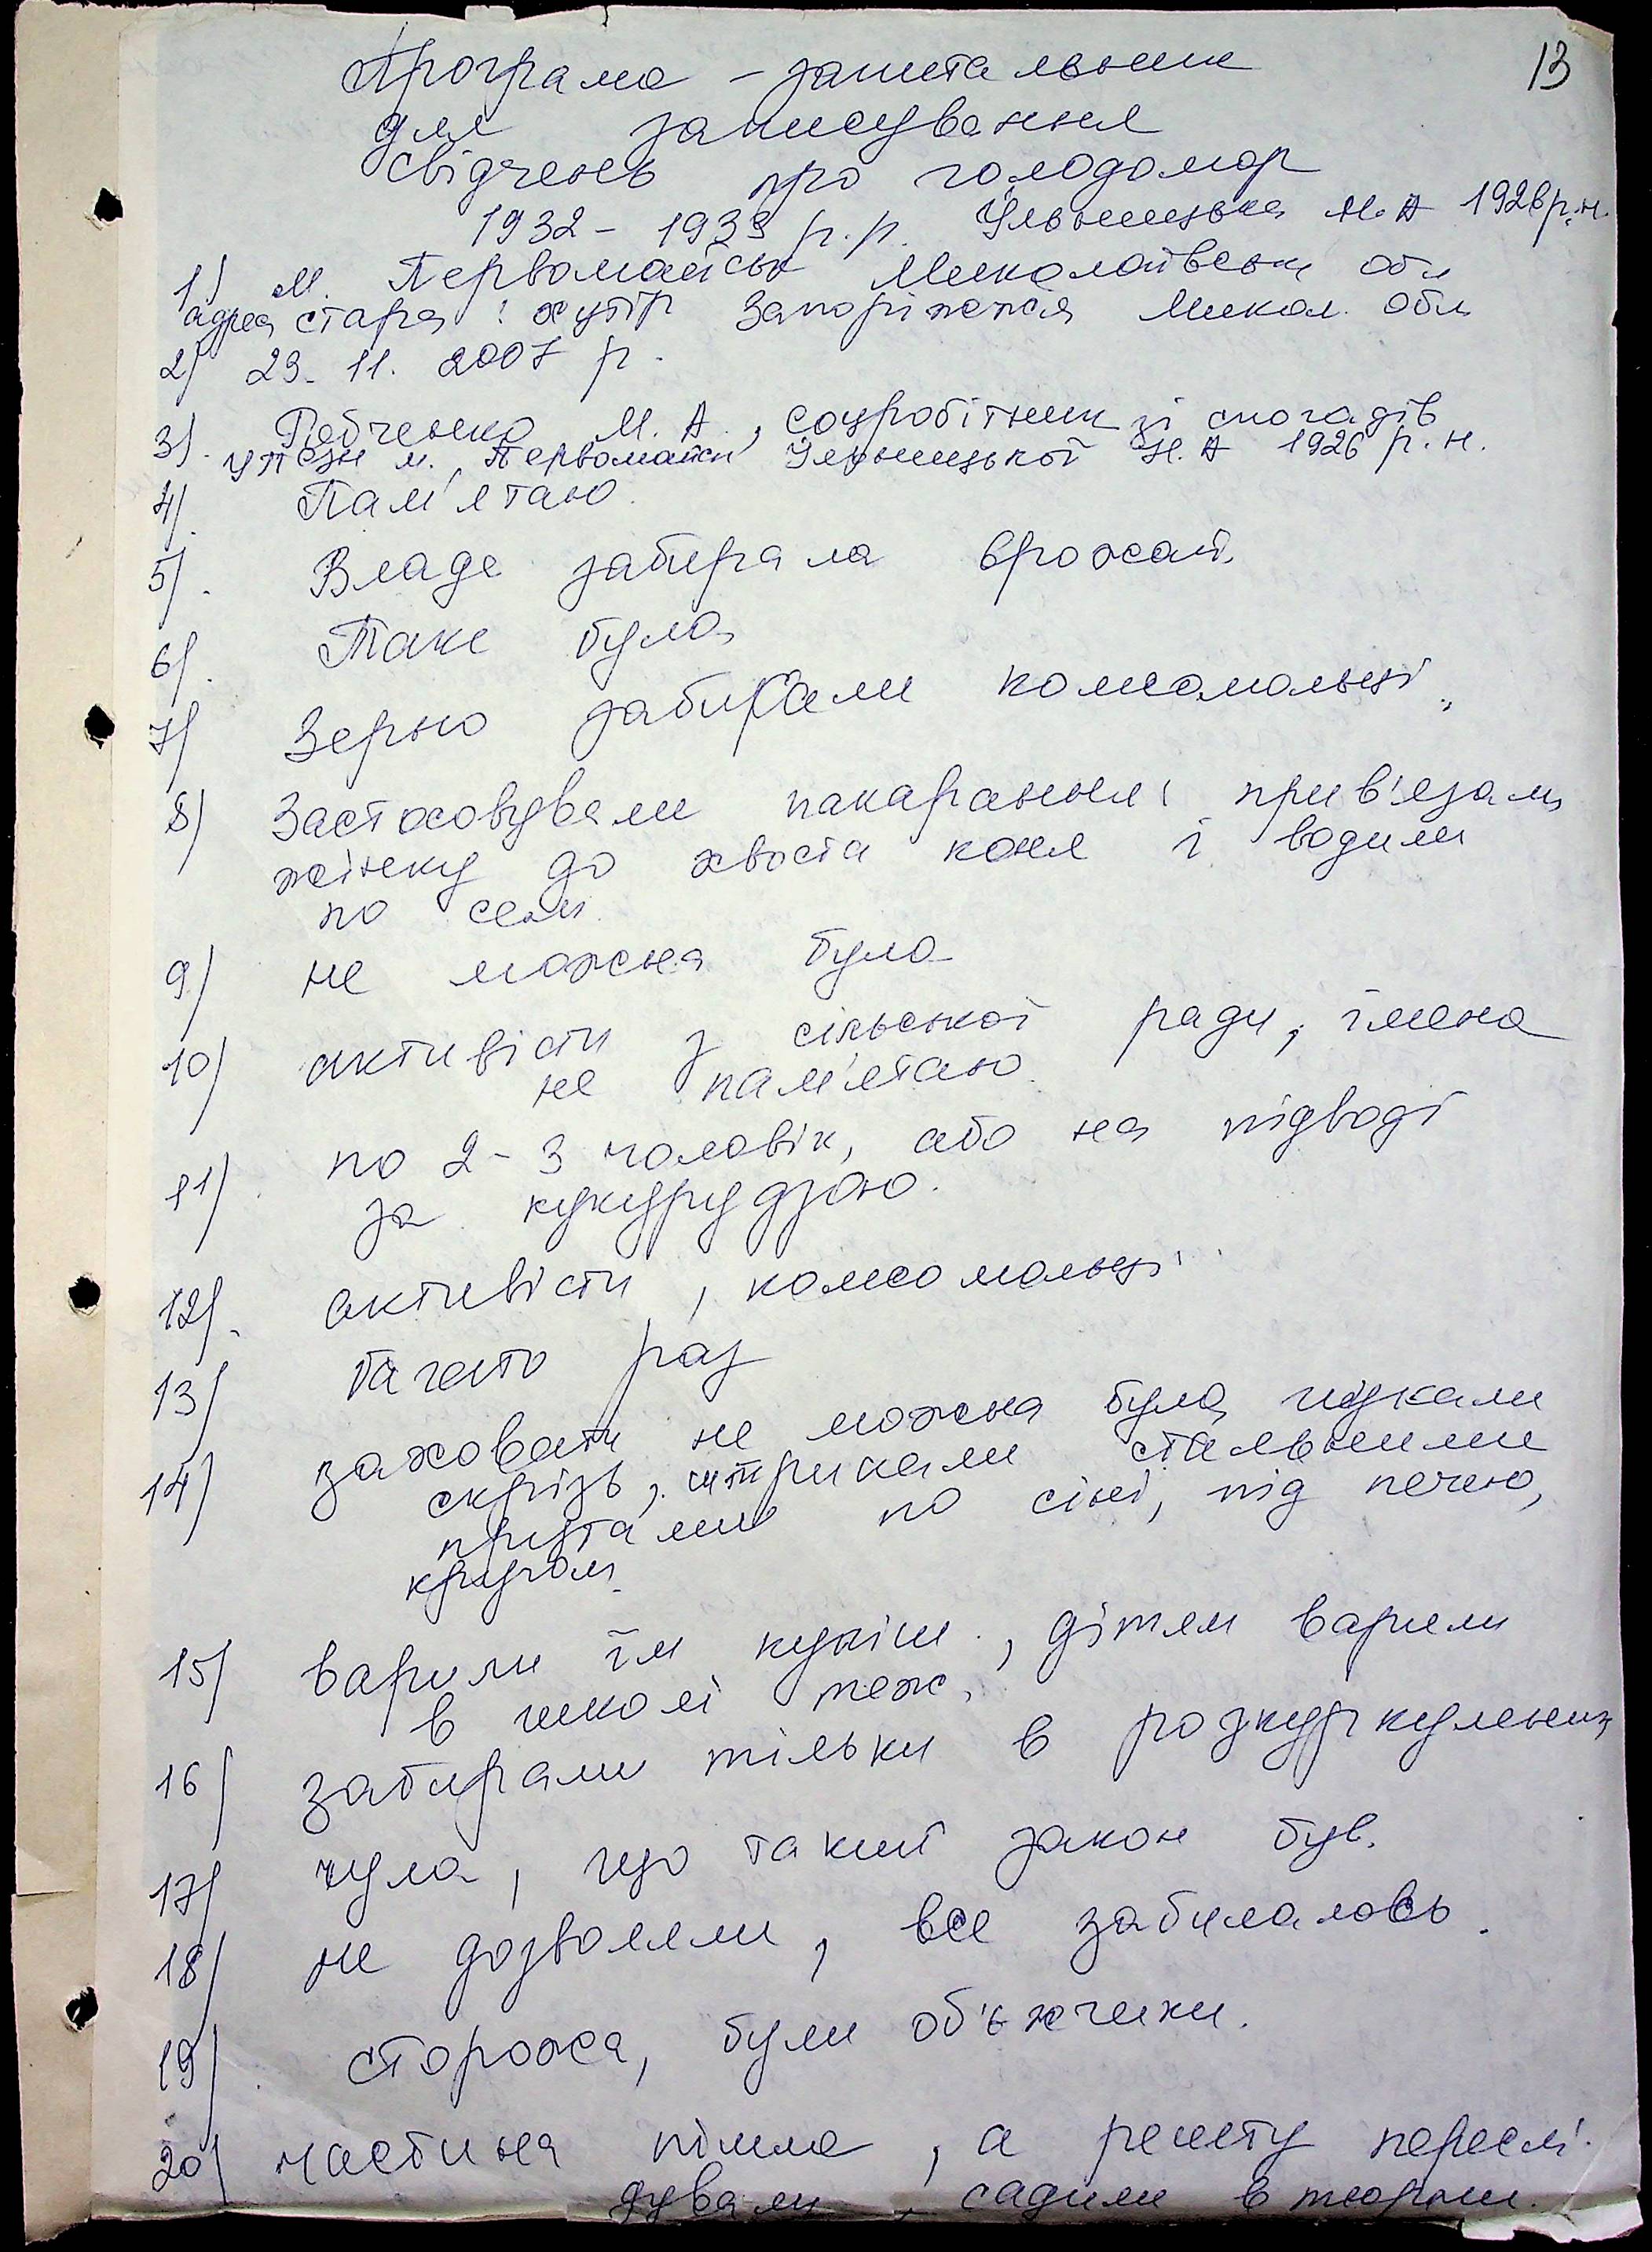 13
Програма – запитальник
для записування
свідчень про голодомор
1932 – 1933 р.р. Ульяницька Н. А 1926 р. н.
1) м. Первомайськ Миколаївськ обл
адреса стара: хутір Запоріжжія Микол. обл
2) 29. 11. 2007 р.
3). М. А., соцробітник зі спогадів
м. Первомайськ Ульяницької Н. А 1926 р. н.
4). Пам'ятаю.
5). Влада забирала врожай.
6). Таке було
7) Зерно забирали комсомольці.
8) Застосовували пакарання: прив'язали
жінку до хвоста коня і водили
по селі.
9) не можна було
10) активісти з сільської ради, імена
не пам'ятаю.
11). по 2 – 3 чоловік, або на підводі
за кукурудзою.
12). активісти, комсомольці
13) багато раз
14) заховати не можна було, шукали
скрізь, штрикали стальними
прутами по сіні, під печею,
кругом.
15) варили їм куліш, дітям варили
в школі теж.
16) забирали тільки в розкуркулених
17) чула, що такий закон був.
18) не дозволяли, все забиралось.
19). сторожа, були об'єжчики.
20) частина пішла, а решту переслі-
дували, садили в тюрьми.